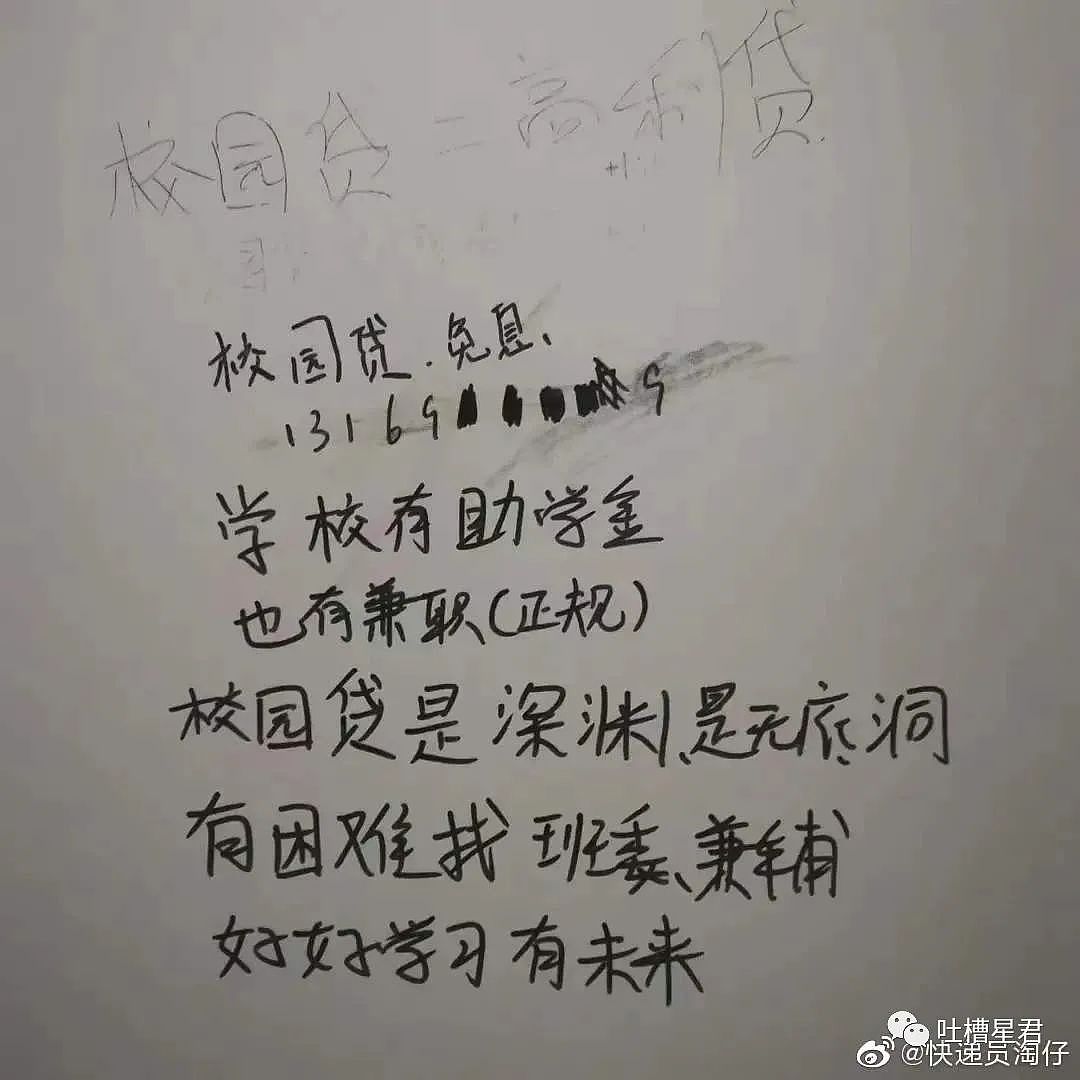 校园贷=高利贷
校园贷.免息、
13169 9
学校有助学金
也有兼职(正规)
校园贷是深渊、是无底洞
有困难找班委、兼辅
好好学习有未来
吐槽星君
@快递员淘仔